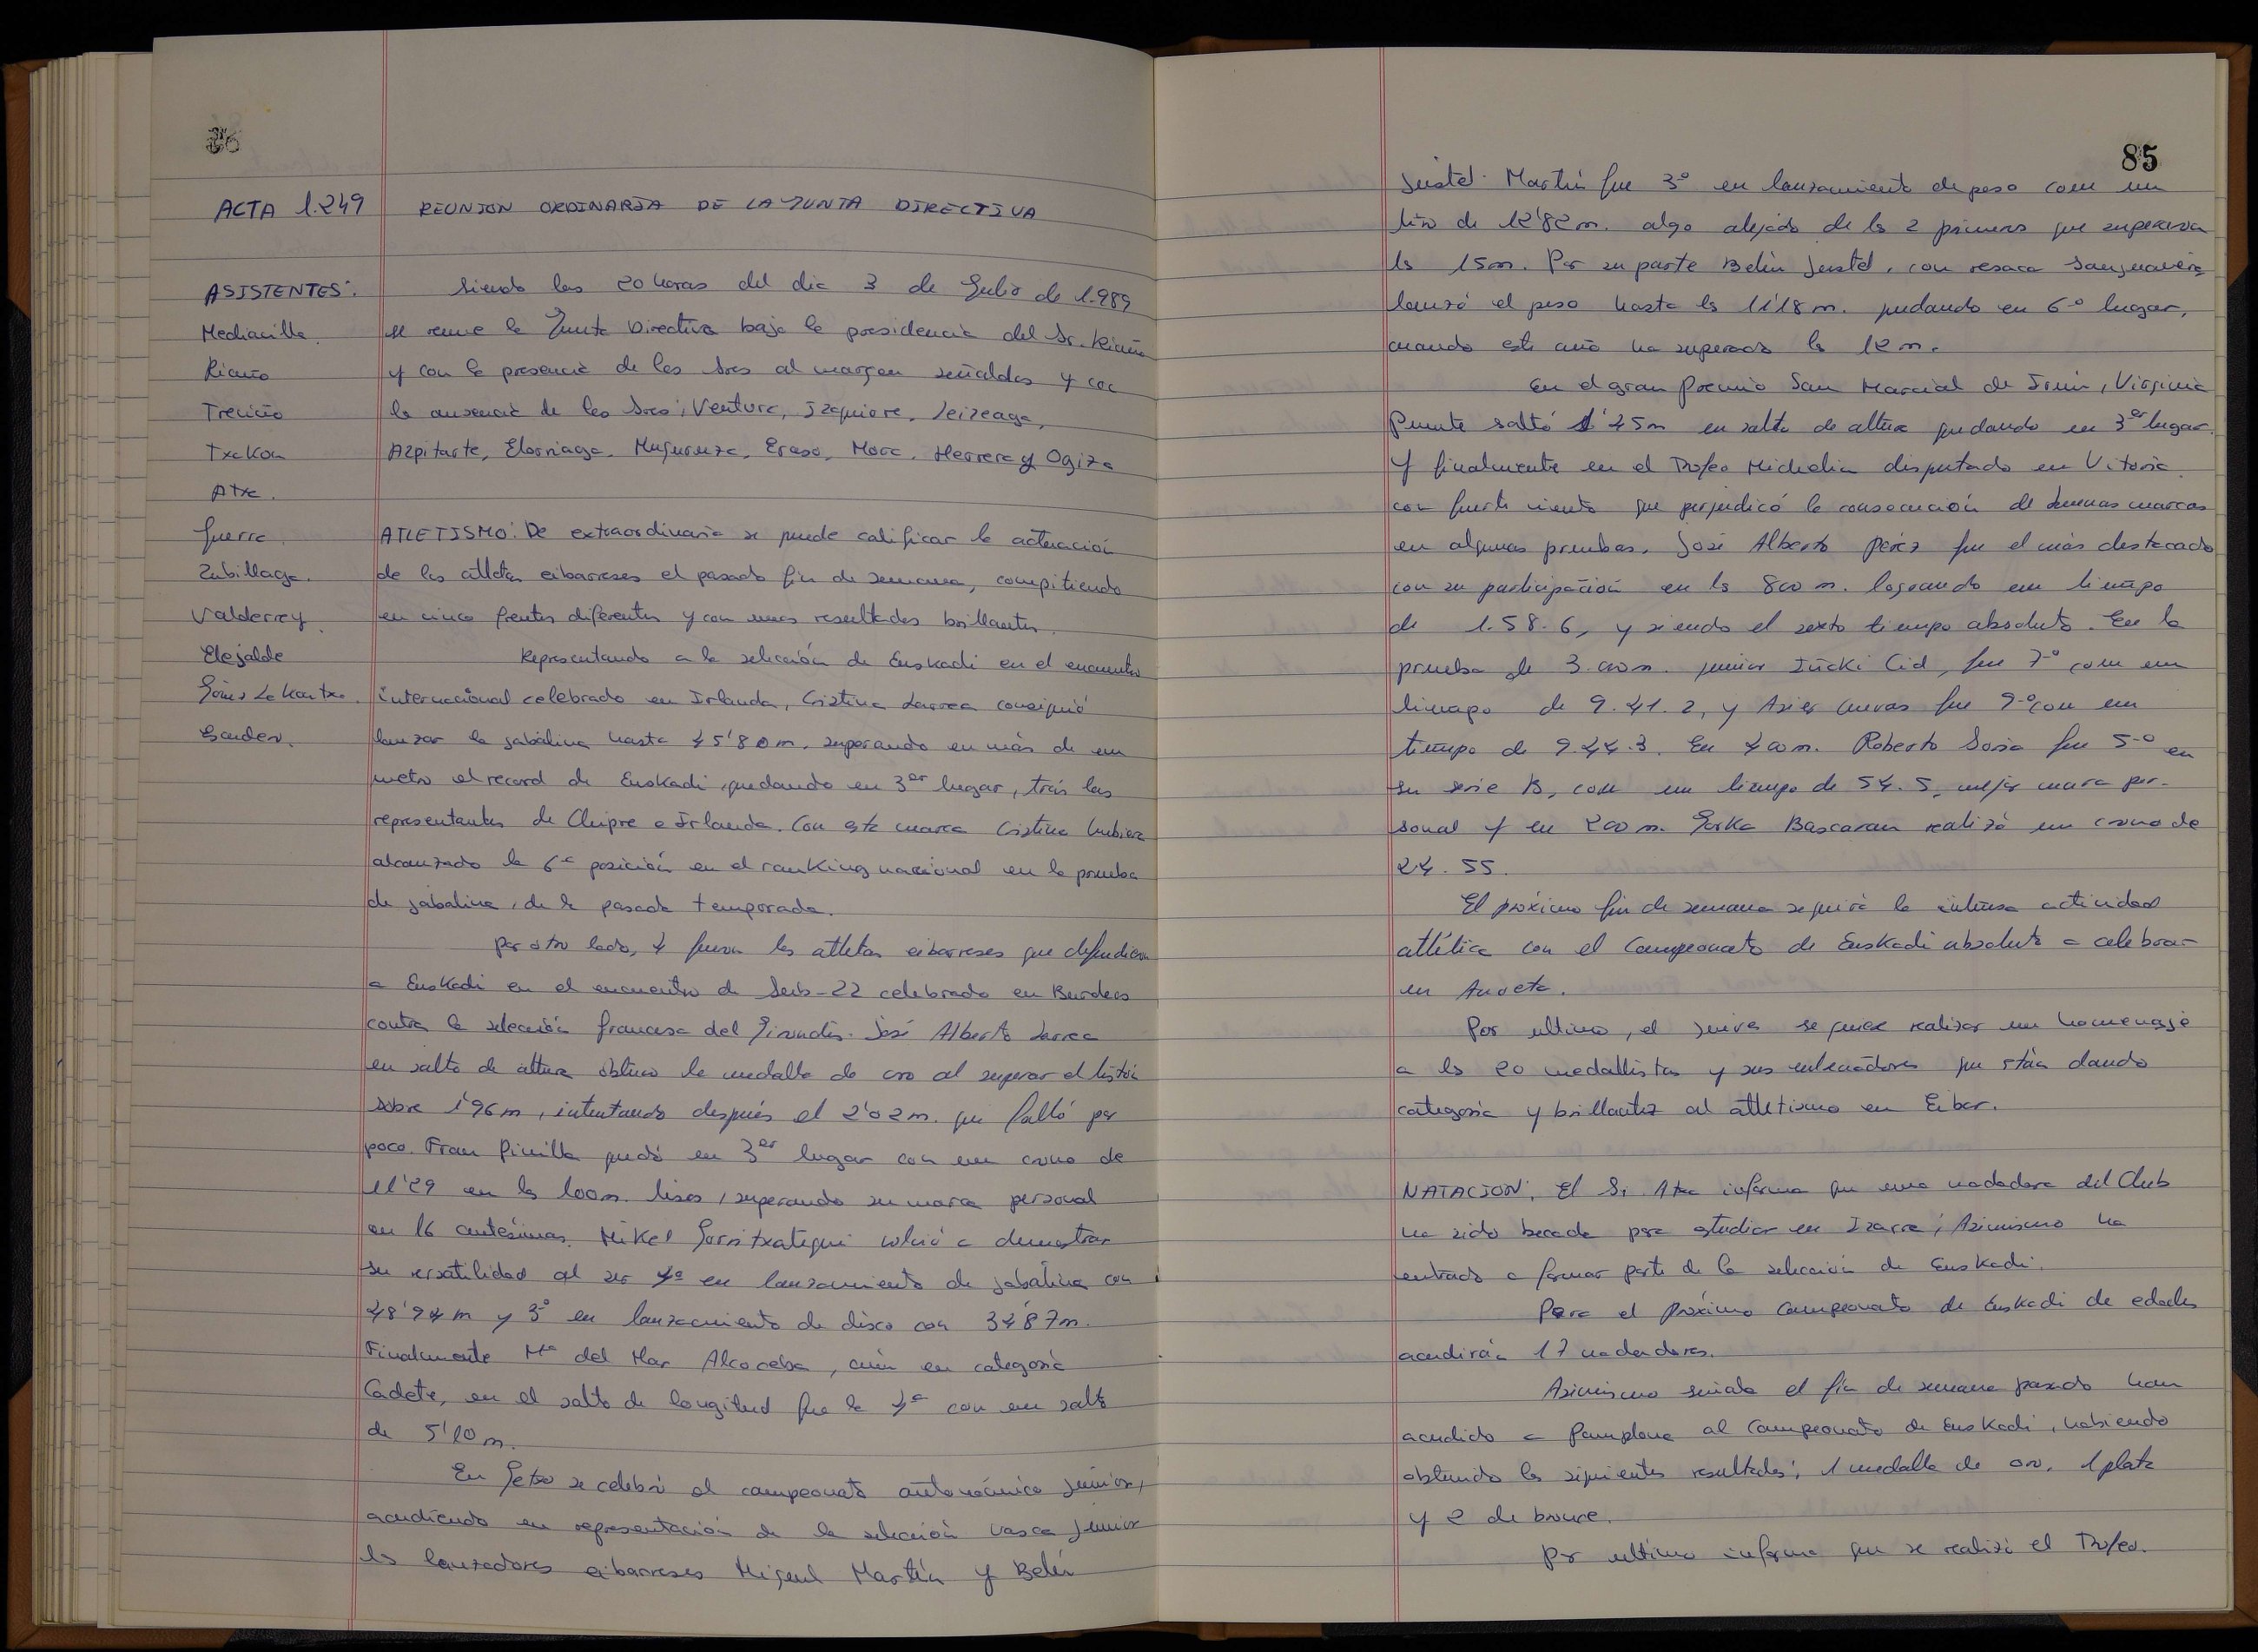 ACTA 1.249 REUNION ORDINARIA DE LA JUNTA DIRECTIVA
ASISTENTES:
Mediavilla.
Riaño
Treviño
Txakon
Atxa.
Guerra.
Zubillaga.
Valderrey.
Elejalde
Goñi Lakantxa.
Sarden.
Siendo las 20 horas del dia 3 de Julio de 1.989
se reune la Junta Directiva bajo la presidencia del Sr. Riaño
y con la presencia de los Sres al margen señalados y con
la ausencia de los Sres; Ventura, Izaguirre, Leizeaga,
Azpitarte, Elorriaga, Muguruza, Eraso, Mora, Herrera y Ogiza
ATLETISMO: De extraordinaria se puede calificar la actuación
de los atletas eibarreses el pasado fin de semana, compitiendo
en cinco frentes diferentes y con unos resultados brillantes.
Representando a la selección de Euskadi en el encuentro
internacional celebrado en Irlanda, Cristina Larrea consiguió
lanzar la jabalina hasta 45'80 m. superando en más de un
metro el record de Euskadi, quedando en 3er lugar, trás las
representantes de Chipre e Irlanda. Con esta marca Cristina hubiera
alcanzado la 6ª posición en el ranking nacional en la prueba
de jabalina, de la pasada temporada.
Por otro lado, 4 fueron los atletas eibarreses que defendieron
a Euskadi en el encuentro de Sub-22 celebrado en Burdeos
contra la selección francesa del Girondis. José Alberto Larrea
en salto de altura obtuvo la medalla de oro al superar el listón
sobre 1'96 m, intentando después el 2'02 m. que falló por
poco. Fran Pinilla quedó en 3er lugar con un crono de
11'29 en los 100 m. lisos, superando su marca personal
en 16 centésimas. Mikel Gorritxategui volvió a demostrar
su versatilidad al ser 4º en lanzamiento de jabalina con
48'94 m y 3º en lanzamiento de disco con 34'87 m.
Finalmente Mª del Mar Alcoceba, aún en categoría
Cadete, en el salto de longitud fue la 4ª con un salto
de 5'10 m.
En Getxo se celebró el campeonato autonómico Junior,
acudiendo en representación de la selección vasca Junior
los lanzadores eibarreses Miguel Martín y Belén
85
Justel. Martín fue 3º en lanzamiento de peso con un
tiro de 12'82 m. algo alejado de los 2 primeros que superaron
los 15 m. Por su parte Belén Justel, con resaca Sanjuanera
lanzó el peso hasta los 11'18 m. quedando en 6º lugar,
cuando este año ha superado los 12 m.
En el gran Premio San Marcial de Irún, Virginia
Puente saltó 1'45 m en salto de altura quedando en 3er lugar.
Y finalmente en el Trofeo Michelin disputado en Vitoria
con fuerte viento que perjudicó la consecución de buenas marcas
en algunas pruebas. José Alberto Pérez fue el más destacado
con su participación en los 800 m. logrando un tiempo
de 1.58.6, y siendo el sexto tiempo absoluto. En la
prueba de 3.000 m. junior Iñaki Cid, fue 7º con un
tiempo de 9.41.2, y Asier Cuevas fue 9º con un
tiempo de 9.44.3. En 400 m. Roberto Soria fue 5º en
su serie B, con un tiempo de 54.5, mejor marca per-
sonal y en 200 m. Gorka Bascaran realizó un crono de
24.55.
El próximo fin de semana seguirá la intensa actividad
atlética con el Campeonato de Euskadi absoluto a celebrar
en Anoeta.
Por ultimo, el jueves se quiere realizar un homenaje
a los 20 medallistas y sus entrenadores que están dando
categoría y brillantez al atletismo en Eibar.
NATACION: El Sr. Atxa informa que una nadadora del Club
ha sido becada para estudiar en Izarra; Asimismo ha
entrado a formar parte de la selección de Euskadi.
Para el próximo Campeonato de Euskadi de edades
acudirán 17 nadadores.
Asimismo señala el fin de semana pasado han
acudido a Pamplona al Campeonato de Euskadi, habiendo
obtenido los siguientes resultados; 1 medalla de oro, 1 plata
y 2 de bronce.
Por ultimo informa que se realizó el Trofeo.